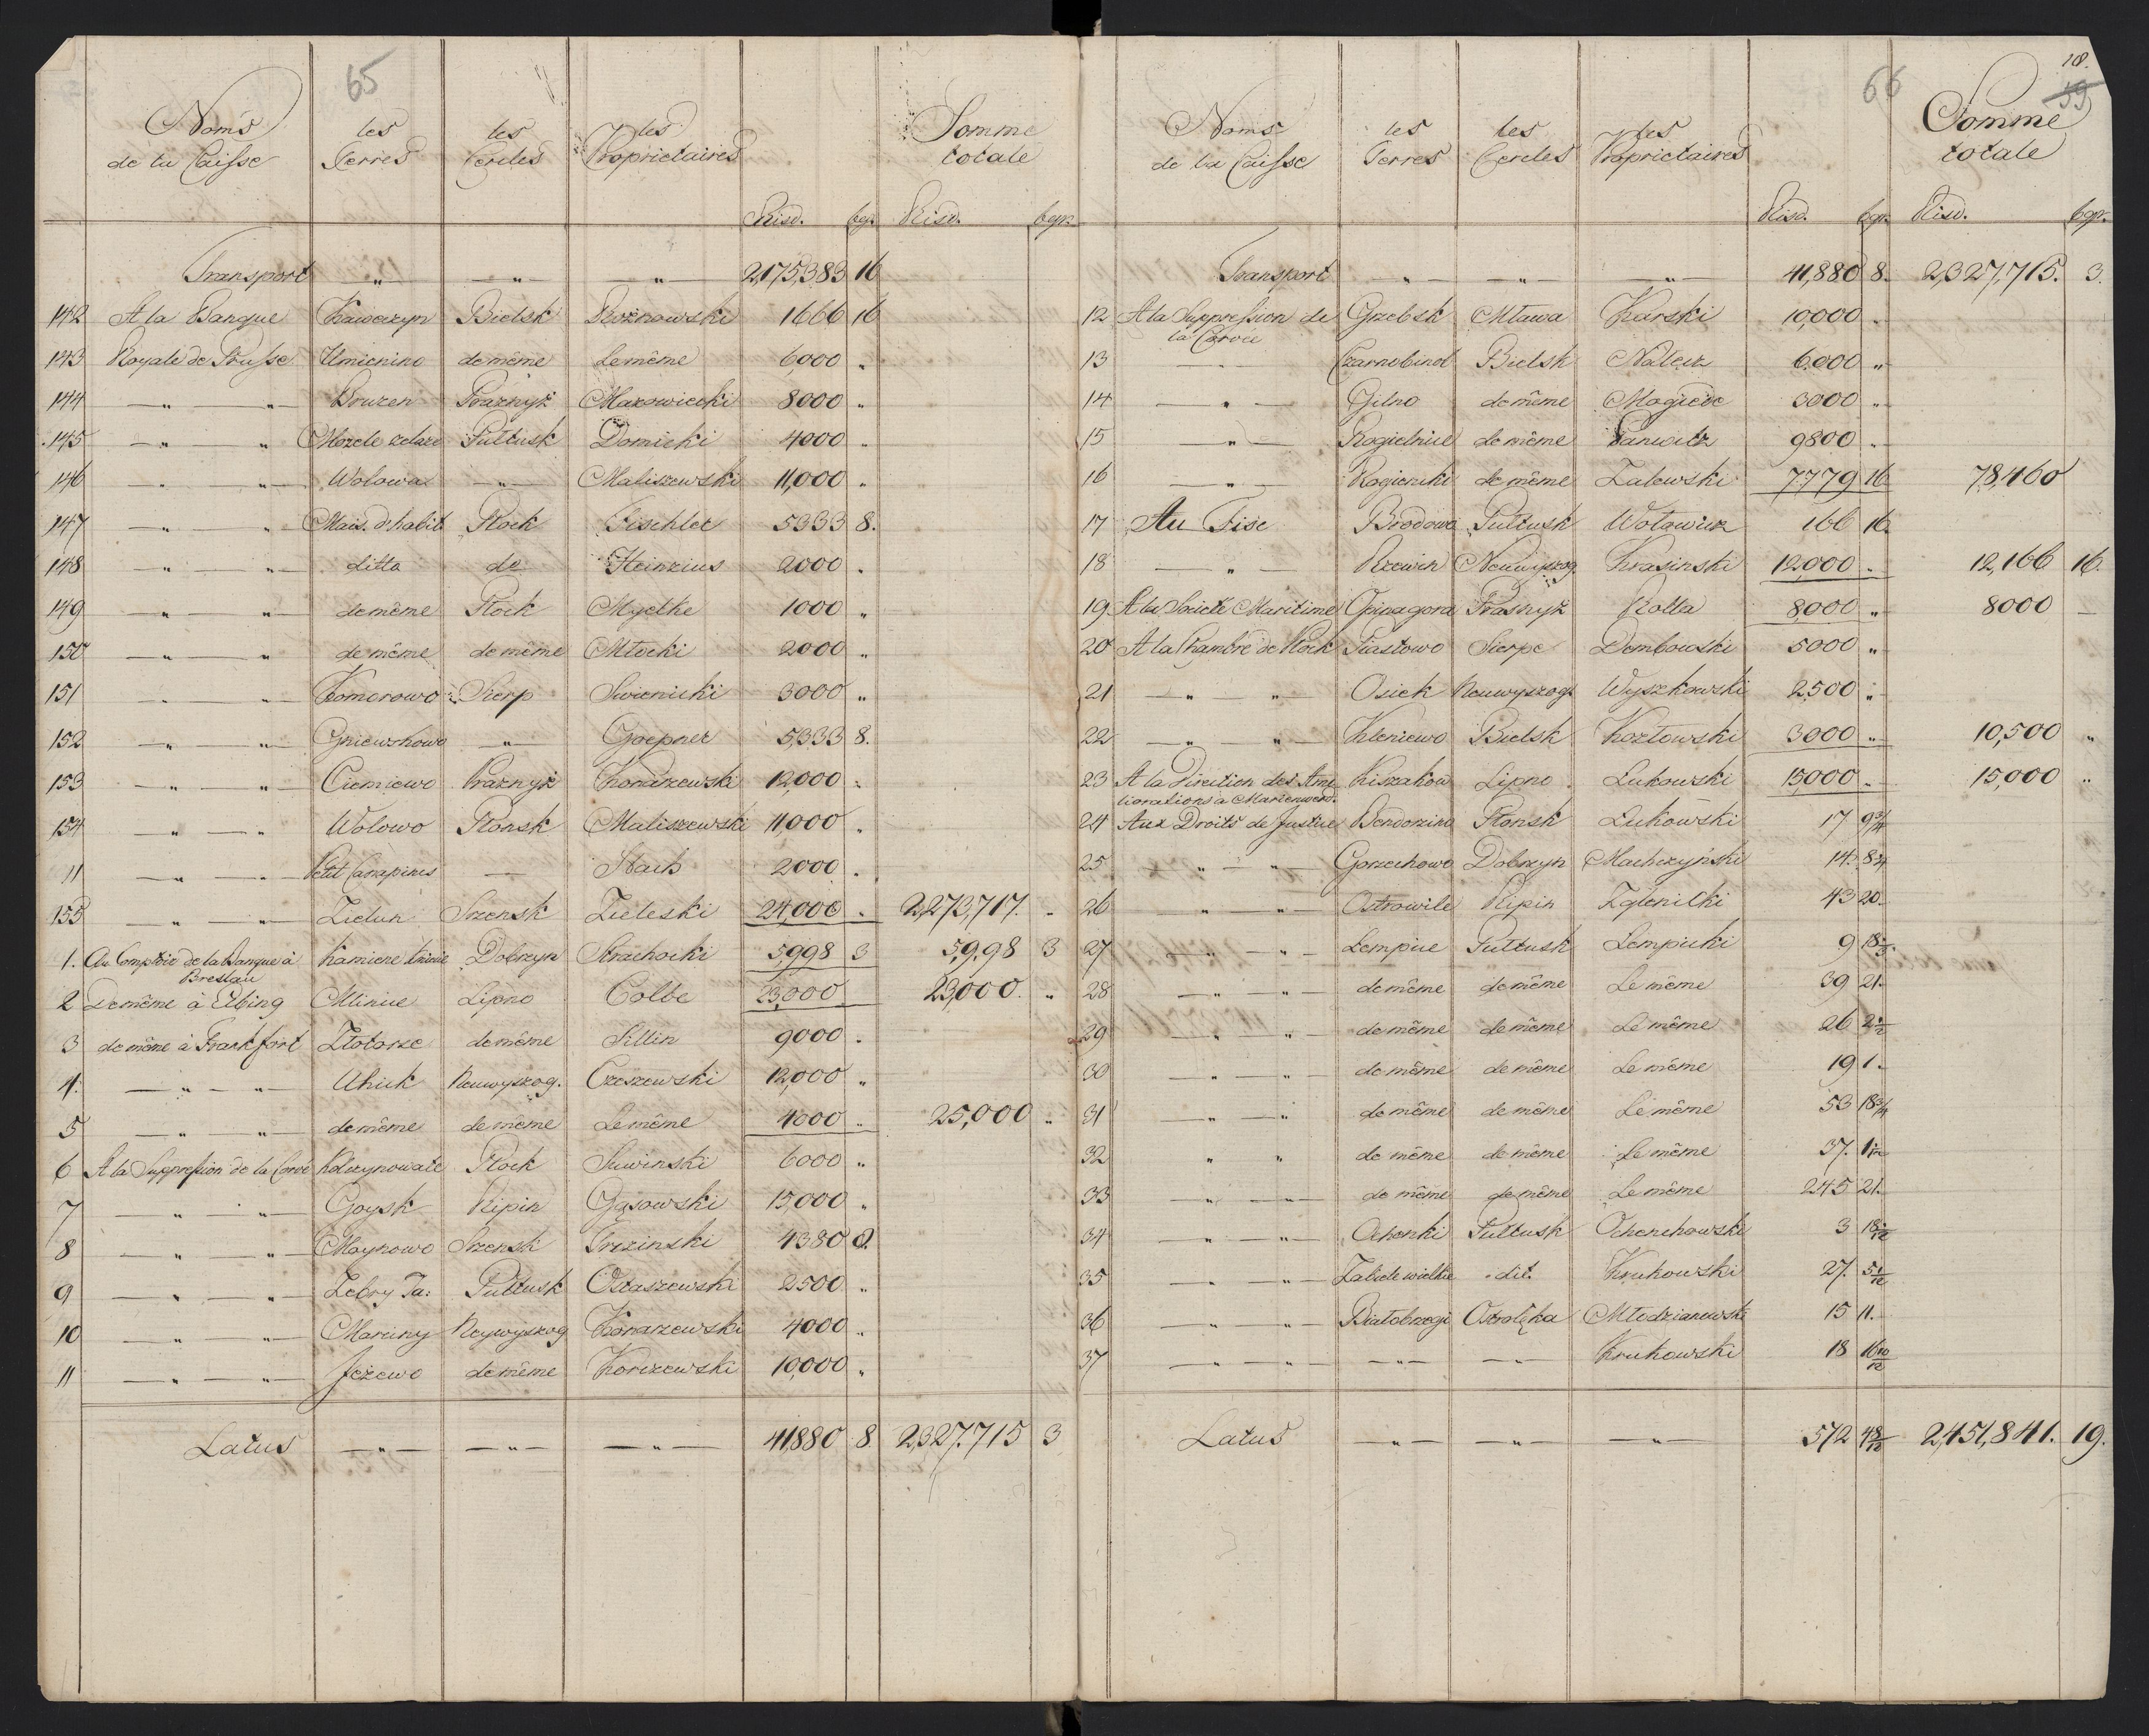 65
Noms de la Caisse | les Terres | les Cercles | les Proprietaires | Risd. | bgr. | Somme totale Risd. | bgr.
Transport „ „ „ 2,175,383 16
142 A la Banque Kaweczyn Bielsk Rożnowski 1666 16
143 Royale de Prusse Umienino de même le même 6,000 „
144 „ „ Bruzen Praznyż Mazowiecki 8000 „
145 „ „ Pultusk Domicki 4000 „
146 „ „ Wolowa „ Maliszewski 11,000 „
147 „ „ Mais. d'habit Plock Tischler 5333 8.
148 „ „ ditto do Heinzius 2000 „
149 „ „ de même Plock Myelke 1000 „
150 „ „ de même de même Młocki 2000 „
151 „ „ Komorowo Sierp Swienicki 3000 „
152 „ „ Gniewskowo „ Goepner 5,333 8.
153 „ „ Ciemiewo Praznyż Konarzewski 12,000 „
154 „ „ Wolowo Plonsk Maliszewski 11,000 „
11 „ „ Petit Stach 2000 „
155 „ „ Zielun Szensk Zieleski 24,000 „ 2,273,717. „
1. Au Comptoir de la Banque à Breslau Dobrzyn Strachocki 5,998 3 5,9,98 3
2 De même à Elbing Minice Lipno Colbe 23,000 23,000. „
3 de même à Frankfort Zlotorze de même Sillin 9000 „
4. „ „ Neuwyszog. Czeszewski 12,000 „
5 „ „ de même de même Le même 4000 „ 25,000 „
6 A la Suppression de la Corvé Plock Suwinski 6000 „
7 „ „ Goysk Ripin Gąsowski 15,000 „
8 „ „ Moynowo Szensk 4380 8.
9 „ „ Zebry Ja: Pultusk Ostaszewski 2500 „
10 „ „ Neywyszog Konarzewski 4000 „
11 „ „ Jeżewo de même Korizewski 10,000 „
Latus „ „ „ 41,880 8. 2,327,715 3
66
18.
59
Noms de la Caisse | les Terres | les Cercles | les Proprietaires | Risd. | bgr. | Somme totale Risd. | bgr.
Transport „ „ „ 41,880 8. 2,327,715. 3.
12 A la Suppression de la Corvée Grzebsk Mława Karski 10,000 „
13 „ Bielsk Nałecz 6,000 „
14 „ Gilno de même 3000 „
15 „ Rogielnice de même Panwitz 9800 „
16 „ Rogienicki de même Zalewski 7,779 16 78,460
17 Au Fisc Brodowo Pultusk 166 16.
18 „ Rzewin Neuwyszog. Krasinski 12,000 „ 12,166 16.
19. A la Societé Maritime Opinagora Prasnyż Rolla 8,000 „ 8000 —
20 A la Chambre de Plock Piastowo Sierpc Dembowski 5000 „
21 „ „ Osiek Neuwyszog. Wyszkowski 2,500 „
22 „ „ Kleniewo Bielsk Kozłowski 3000 „ 10,500 „
23 A la Direction des Ame liorations a Marienwerd. Kiszakow Lipno Lukowski 15,000 „ 15,000 „
24 Aux Droits de Justice Bendorzino Plonsk Lukowski 17 9¾
25 „ „ Gorzechowo Dobrzyn Machczyński 14. 8¾
26 „ „ Ostrowile Ripin Zglenicki 43 20.
27 „ „ Lempice Pultusk Lempicki 9
28 „ „ de même de même Le même 39 21.
29 „ „ de même de même Le même 26
30 „ „ de même de même Le même 19 1.
31 „ „ de même de même Le même 53 18¾
32 „ „ de même de même Le même 37.
33 „ „ de même de même Le même 245 21.
34 „ „ Ochenki Pultusk Ochenchowski 3
35 „ „ Zabiele wielkie dit. Krukowski 27.
36 „ „ Białobrzegi Ostrołęka Młodzianowski 15 11.
37 „ „ „ „ Krukowski 18
Latus „ „ „ 572 2,451,841. 19.